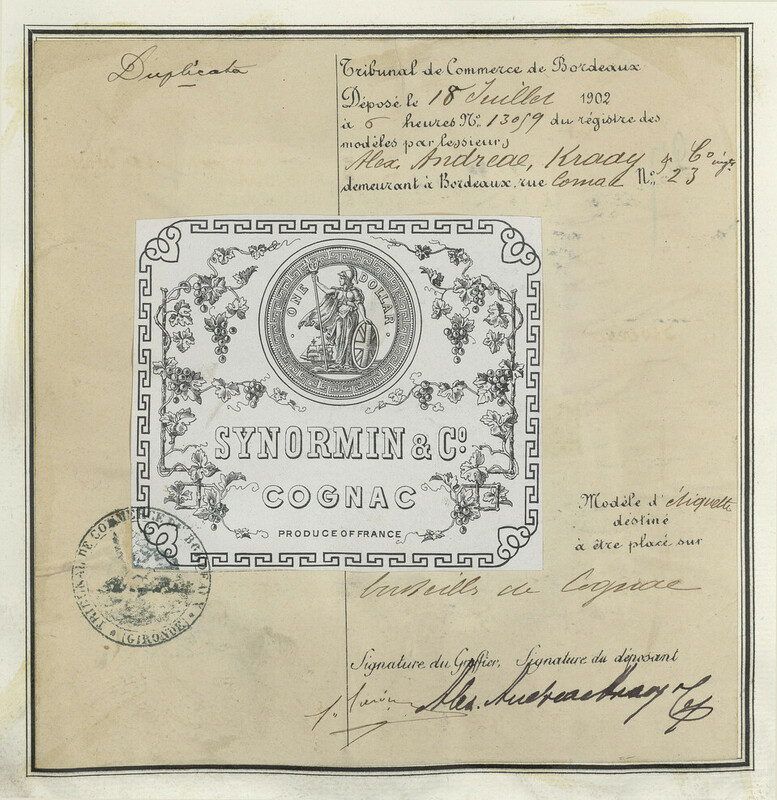 Duplicata
Tribunal de Commerce de Bordeaux
Déposé le 18 Juillet 1902
à 6 heures No. 13059 du régistre des
modèles par lessieurs
Alex. Andreae, Kraay & Co
demeurant à Bordeaux, rue No. 23
ONE DOLLAR
SYNORMIN & Co.
COGNAC
PRODUCE OF FRANCE
Modèle d'étiquette
destiné
à être placé sur
bouteilles de Cognac
TRIBUNAL DE COMMERCE DE BORDEAUX
(GIRONDE)
Signature du Greffier, Signature du déposant
Alex. Andreae Kraay & Co